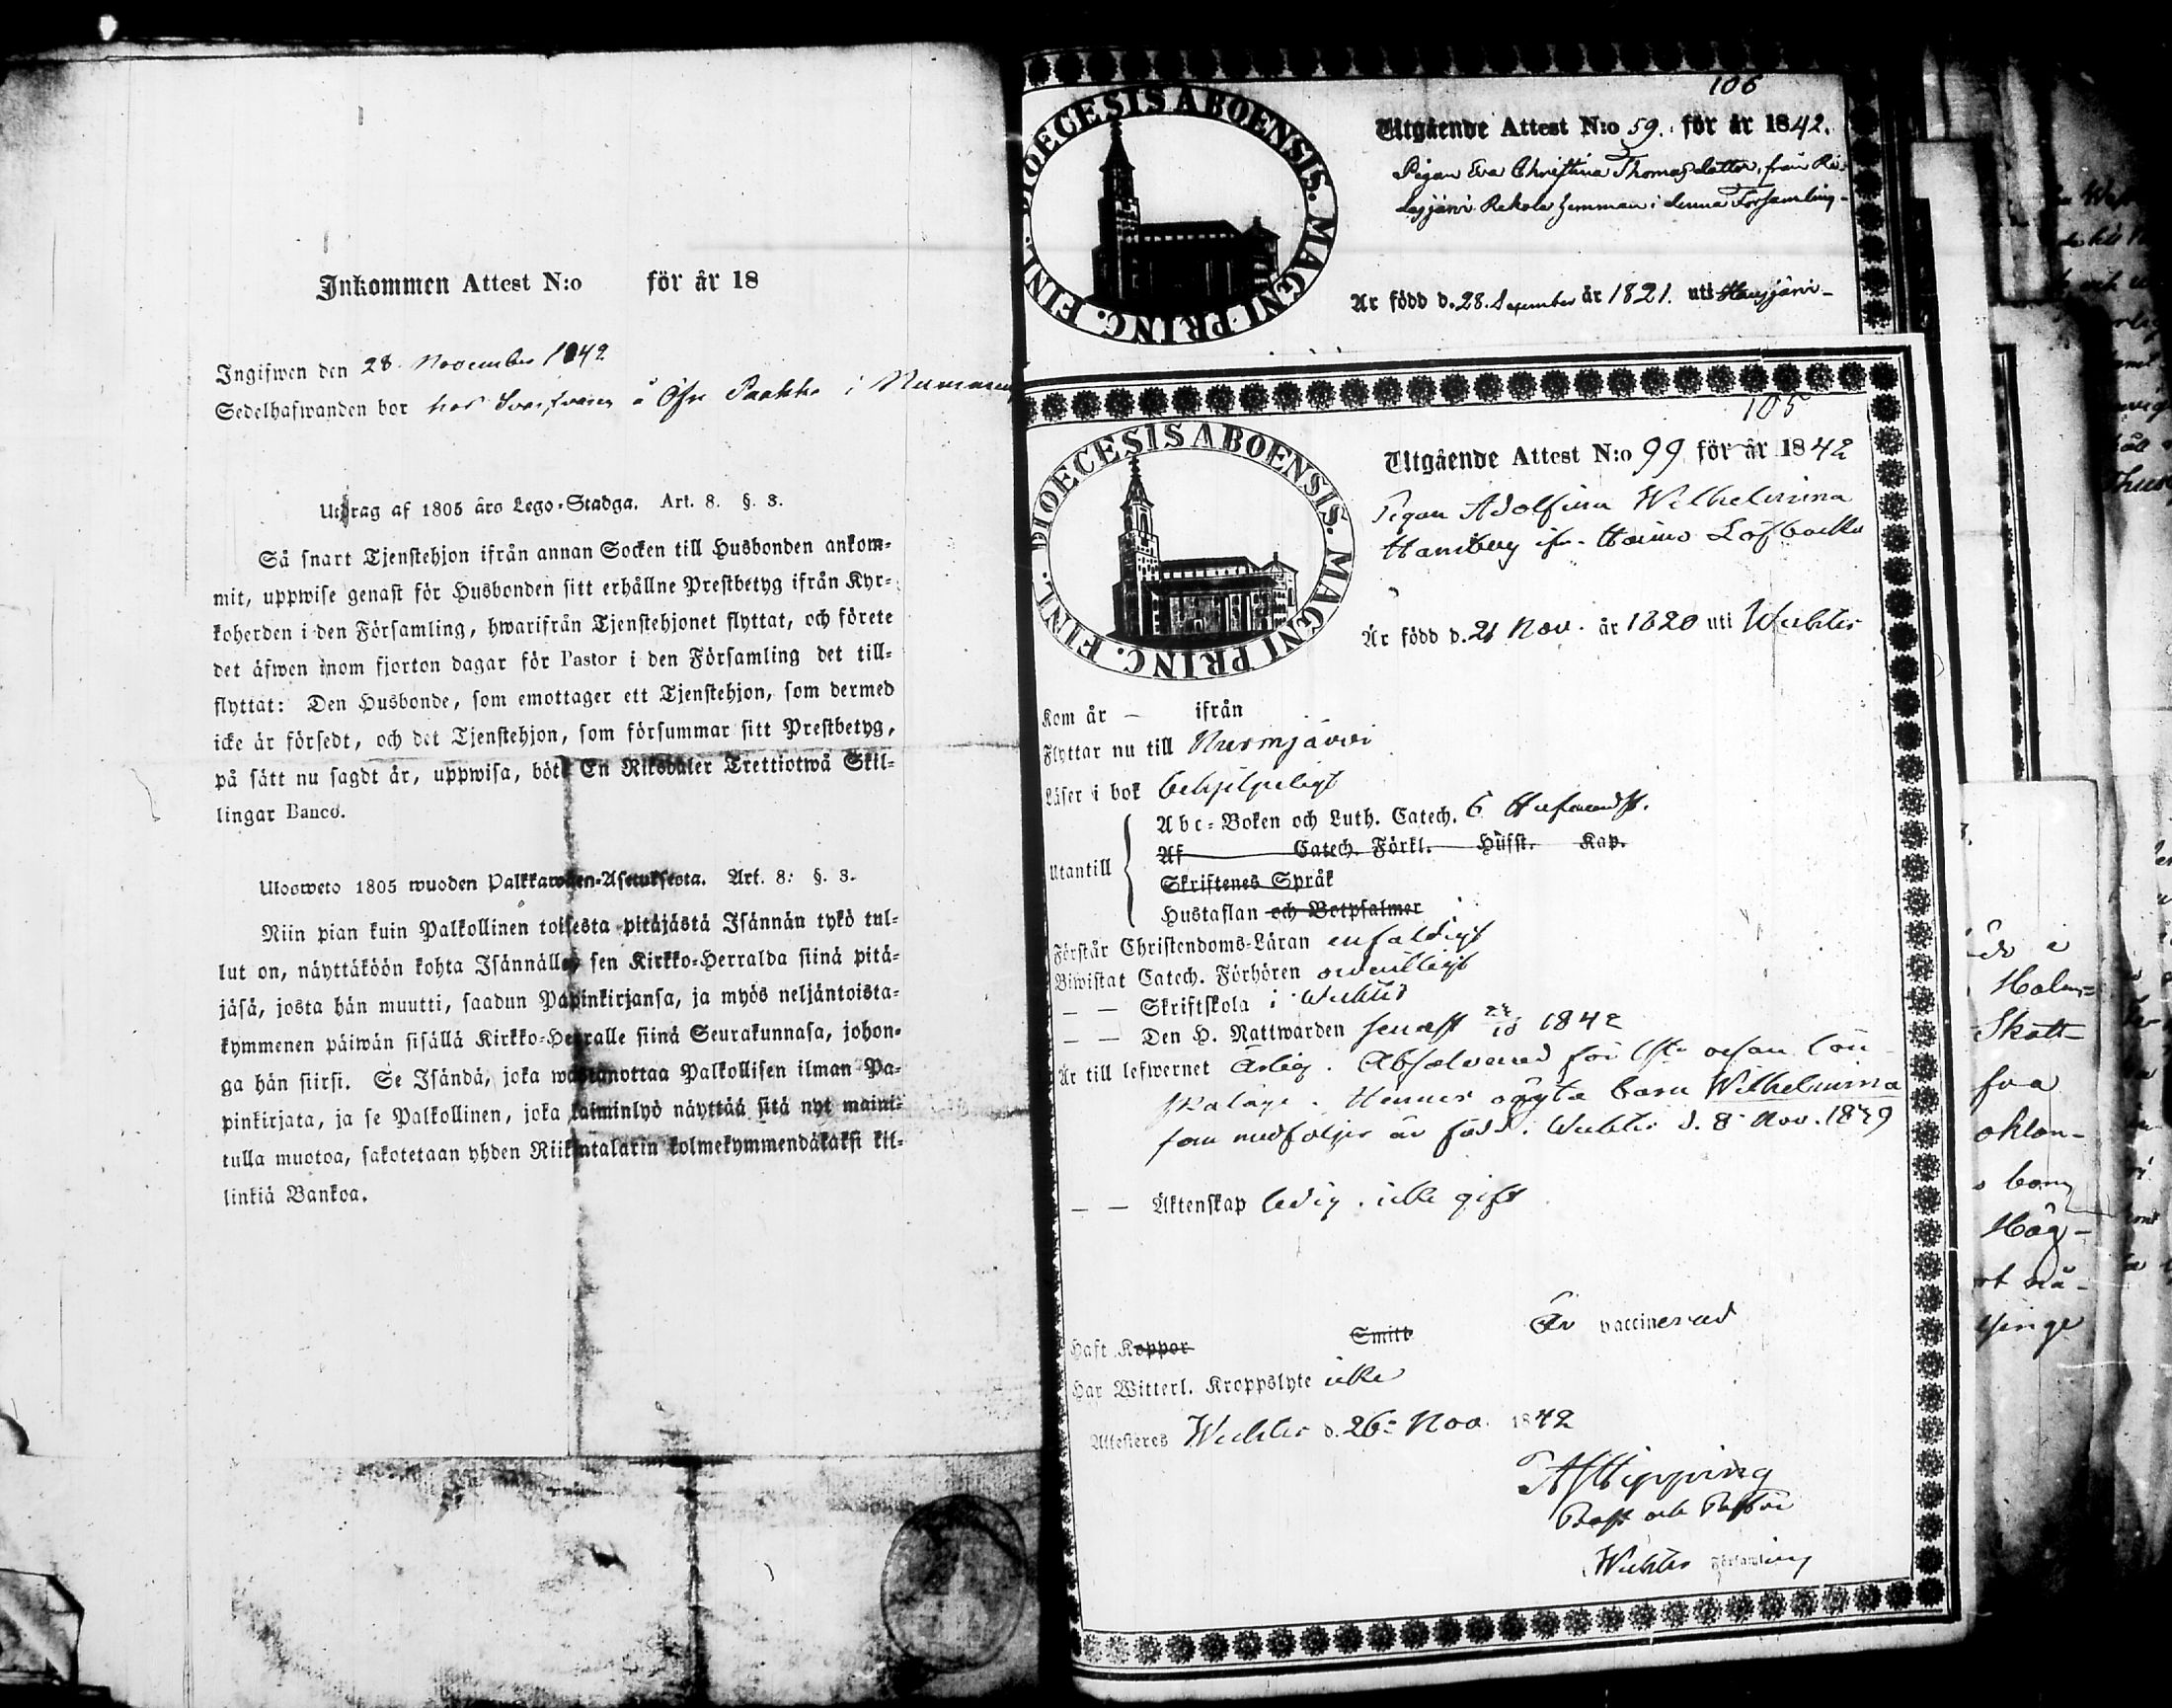 Inkommen Attest N:o för år 18
Ingifwen den 28. November 1842
Sedelhafwanden bor hos å Öfre Paakka i
Utdrag af 1805 års Lego-Stadga. Art. 8. §. 3.
Så snart Tjenstehjon ifrån annan Socken till Husbonden ankom-
mit, uppwise genast för Husbonden sitt erhållne Prestbetyg ifrån Kyr-
koherden i den Församling, hwarifrån Tjenstehjonet flyttat, och förete
det äfwen inom fjorton dagar för Pastor i den Församling det till-
flyttat: Den Husbonde, som emottager ett Tjenstehjon, som dermed
icke är försedt, och det Tjenstehjon, som försummar sitt Prestbetyg,
på sätt nu sagdt är, uppwisa, böte En Riksdaler Trettiotwå Skil-
lingar Banco.
Ulosweto 1805 wuoden Palkkawäen-Asetuksesta. Art. 8: §. 3.
Niin pian kuin Palkollinen toisesta pitäjästä Isännän tykö tul-
lut on, näyttäköön kohta Isännällen sen Kirkko-Herralda siinä pitä-
jäsä, josta hän muutti, saadun Papinkirjansa, ja myös neljäntoista-
kymmenen päiwän sisällä Kirkko-Herralle siinä Seurakunnasa, johon-
ga hän siirsi. Se Isändä, joka wastanottaa Palkollisen ilman Pa-
pinkirjata, ja se Palkollinen, joka laiminlyö näyttää sitä nyt maini-
tulla muotoa, sakotetaan yhden Riikintalarin kolmekymmendäkaksi kil-
linkiä Bankoa.
106
DIOECESIS ABOENSIS. MAGNI PRINC. FINL.
Utgående Attest N:o 59. för år 1842.
Pigan Eva Christina Thomasdotter, från
Rekola hemman i denna Församling-
Är född d. 28. December år 1821. uti Hausjärvi-
105
DIOECESIS ABOENSIS. MAGNI PRINC. FINL.
Utgående Attest N:o 99 för år 1842
Pigan Adolfina Wilhelmina
Hamberg ifr. Löfbacka
Är född d. 21 Nov. år 1820 uti Wichtis
Kom år — ifrån
Flyttar nu till Nurmijärvi
Läser i bok behjelpeligt
Utantill
Abc-Boken och Luth. Catech. 6 Hufvudst.
Af Catech. Förkl. Hüfst. Kap.
Skriftenes Språk
Hustaflan och Botpsalmer
Förstår Christendoms-Läran enfaldigt
Biwistat Catech. Förhören ordentligt
— — Skriftskola i Wichtis
— — Den H. Nattwarden senast 23/10 1842
Är till lefwernet Ärlig. Absolverad för 1sta resan lön-
skaläge. Hennes oägta barn Wilhelmina
som medföljer är född i Wichtis d. 8 Nov. 1839
— — Äktenskap ledig. icke gift
Haft Koppor Smitt Är vaccinerad
Har Witterl. Kroppslyte icke
Attesteres Wichtis d. 26 Nov. 1842
Prost och Pastor
Wichtis Församling
Holm-
Skatt-
Häg-